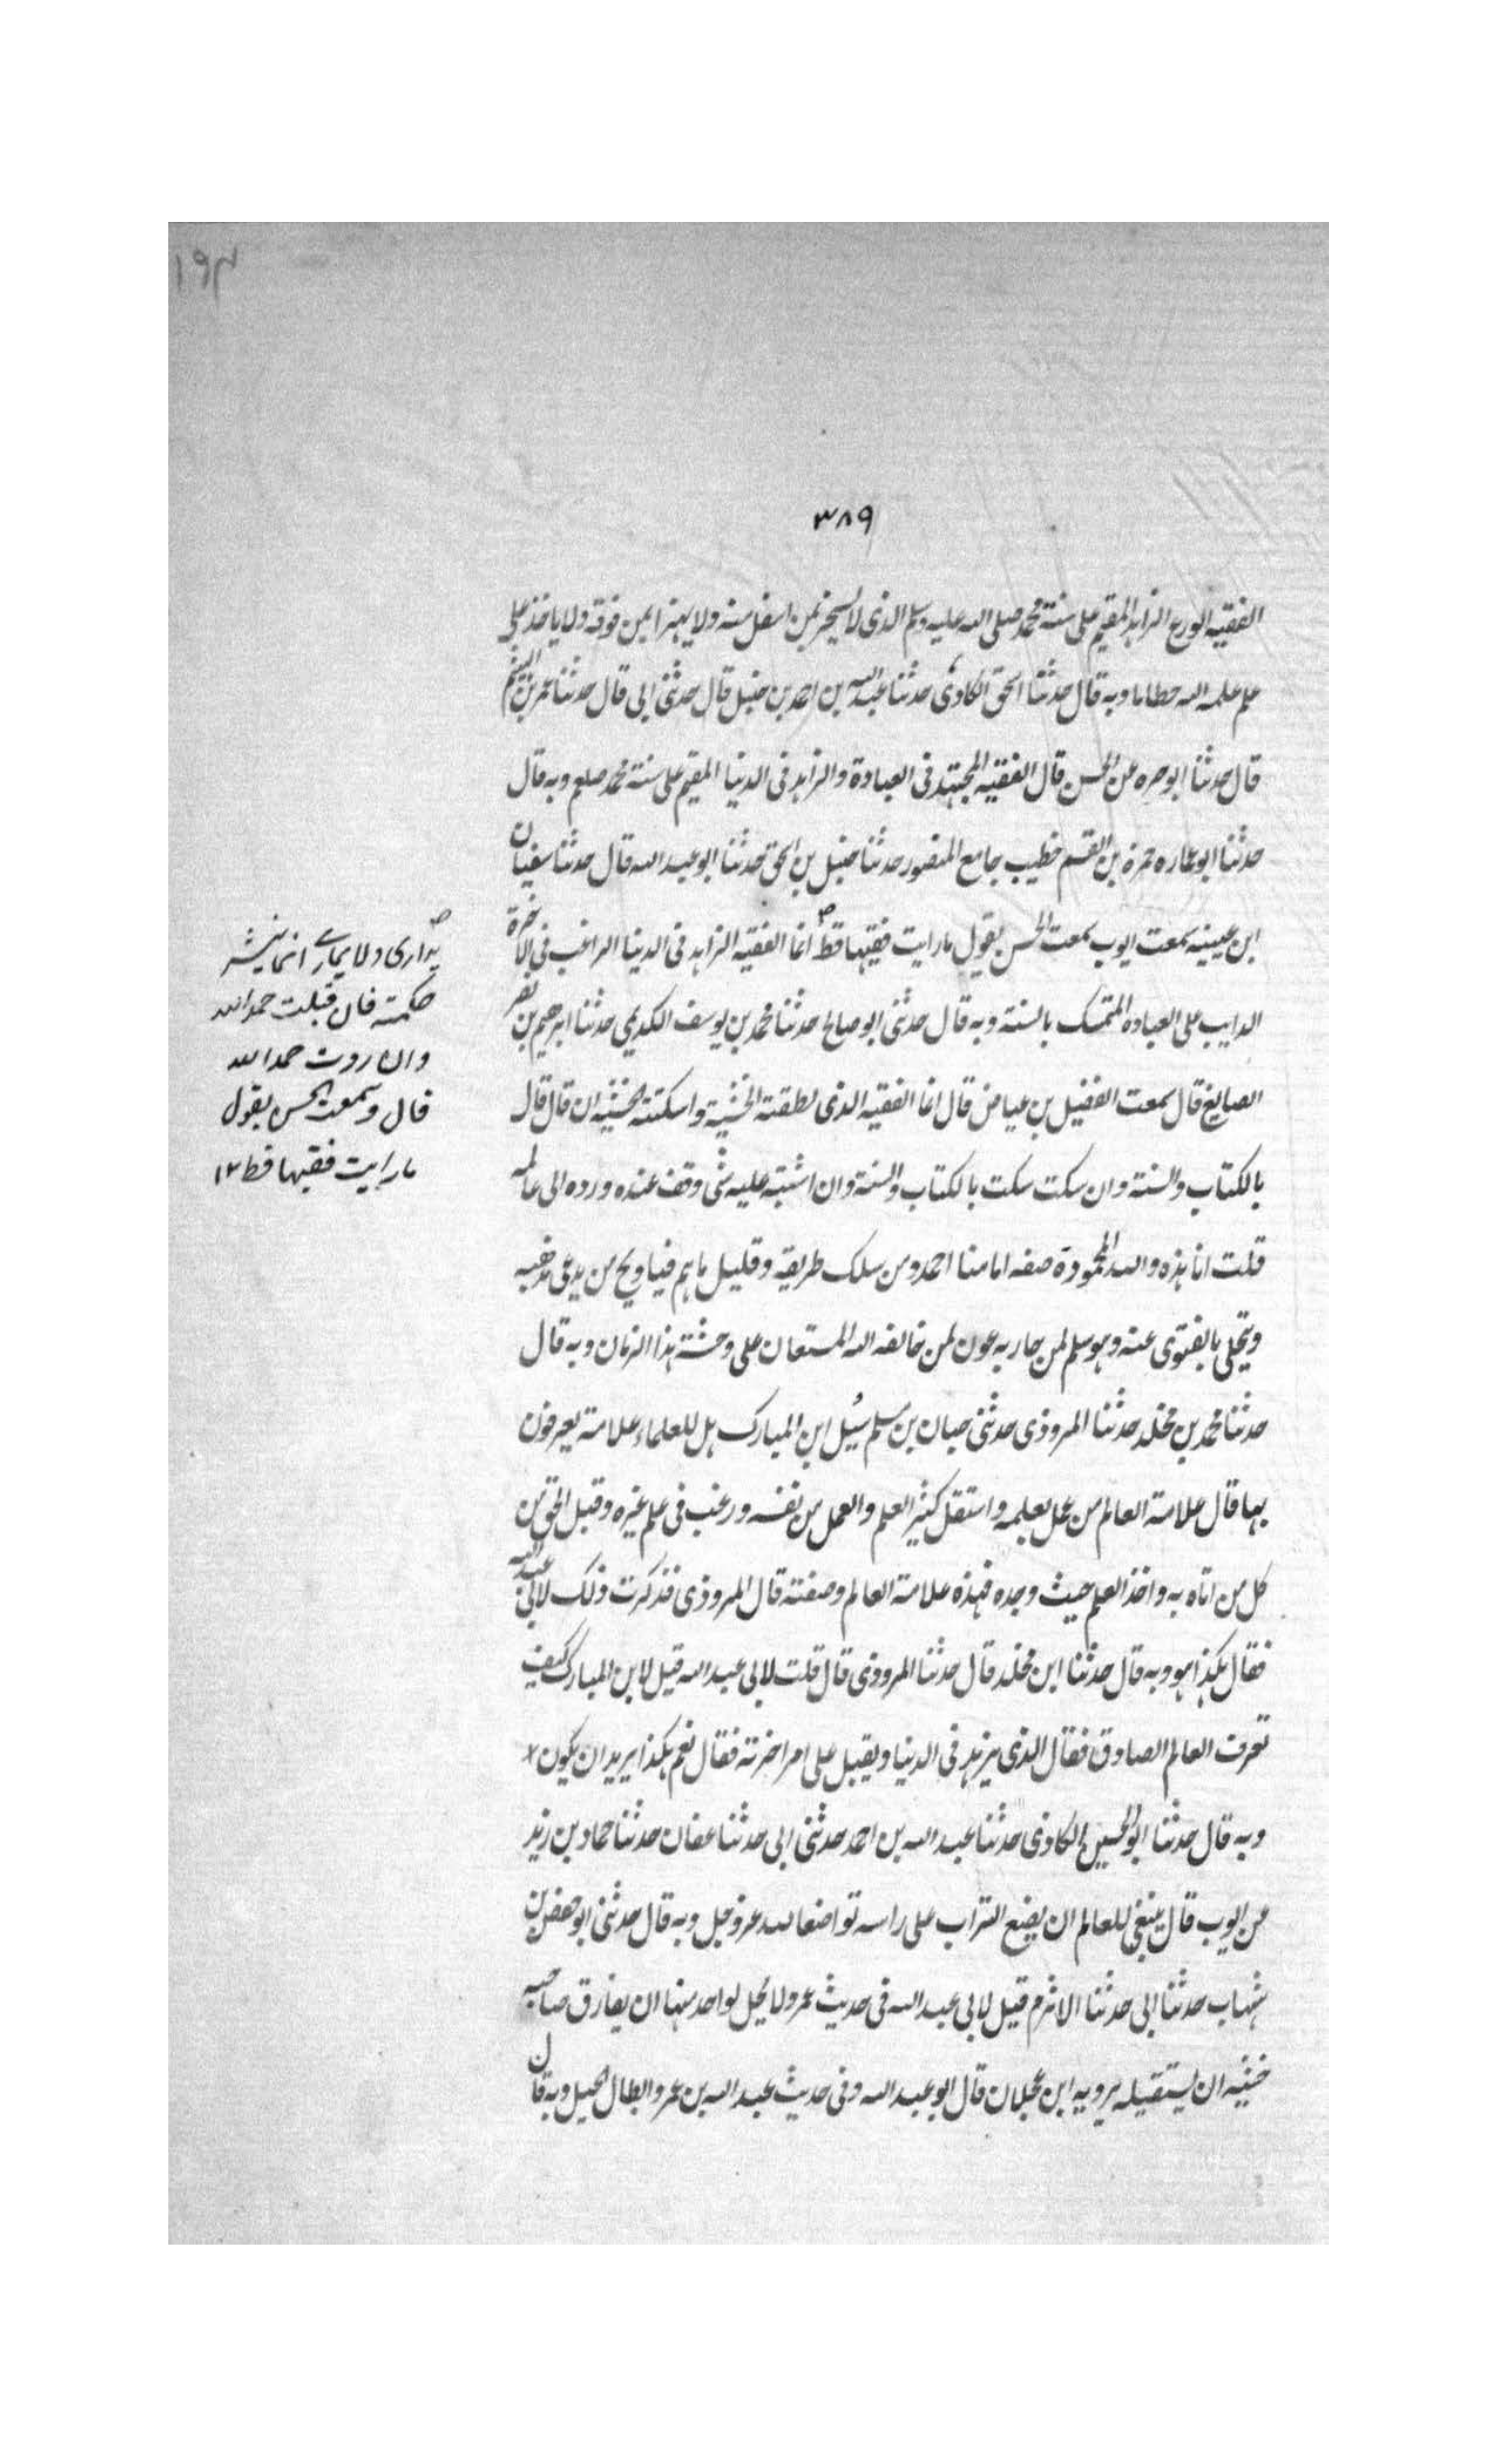 ١٩٣
٣٨٩
الفقيه الورع الزاهد المقيم على سنة محمد صلى الله عليه وسلم الذى لا يسخر بمن اسفل منه ولا يهزا بمن فوقه ولا ياخذ على
علم علمه الله حطاما وبه قال حدثنا اسحق الكاذى حدثنا عبد الله بن احمد بن حنبل قال حدثنى ابى قال حدثنا عمر بن الهيثم
قال حدثنا ابو حره عن الحسن قال الفقيه المجتهد فى العبادة والزاهد فى الدنيا المقيم على سنة محمد صلعم وبه قال
حدثنا ابو عماره حمزة بن القسم خطيب جامع المنصور حدثنا حنبل بن اسحق حدثنا ابو عبد الله قال حدثنا سفيان
ابن عيينه سمعت ايوب سمعت الحسن يقول ما رايت فقيها قط انما الفقيه الزاهد فى الدنيا الراغب فى الاخرة
الدايب على العباده المتمسك بالسنة وبه قال حدثنى ابو صالح حدثنا محمد بن يوسف الكديمي حدثنا ابرهيم بن نصر
الصايغ قال سمعت الفضيل بن عياض قال انما الفقيه الذى نطقته الخشية واسكتته الخشيه ان قال قال
بالكتاب والسنة وان سكت سكت بالكتاب والسنة وان اشتبه عليه شى وقف عنده ورده الى عالمه
قلت انا هذه والله المحمودة صفه امامنا احمد ومن سلك طريقه وقليل ما هم فيا ويح من يدعى مذهبه
ويتحلى بالفتوى عنه وهو سلم لمن حاربه عون لمن خالفه الله المستعان على وحشة هذا الزمان وبه قال
حدثنا محمد بن مخلد حدثنا المروذى حدثنى حبان بن مسلم سُئل ابن المبارك هل للعلماء علامة يعرفون
بها قال علامة العالم من عمل بعلمه واستقل كثير العلم والعمل من نفسه ورغب فى علم غيره وقبل الحق من
كل من اتاه به واخذ العلم حيث وجده فهذه علامة العالم وصفته قال المروذى فذكرت ذلك لابى عبد الله
فقال هكذا هو وبه قال حدثنا ابن مخلد قال حدثنا المروذى قال قلت لابى عبد الله قيل لابن المبارك كيف
تعرف العالم الصادق فقال الذى يزهد فى الدنيا ويقبل على امر اخرته فقال نعم هكذا يريد ان يكون
وبه قال حدثنا ابو الحسين الكاذى حدثنا عبد الله بن احمد حدثنى ابى حدثنا عفان حدثنا حماد بن زيد
عن ايوب قال ينبغى للعالم ان يضع التراب على راسه تواضعا لله عز وجل وبه قال حدثنى ابو حفص بن
شهاب حدثنا ابى حدثنا الاثرم قيل لابى عبد الله فى حديث عمر ولا يحل لواحد منهما ان يفارق صاحبه
خشيه ان يستقيله يرويه ابن عجلان قال ابو عبد الله وفى حديث عبد الله بن عمرو ابطال الحيل وبه قال
يدارى ولا يمارى انما ينشر
حكمته فان قبلت حمد الله
وان ردت حمد الله
قال وسمعت الحسن يقول
ما رايت فقيها قط ١٢